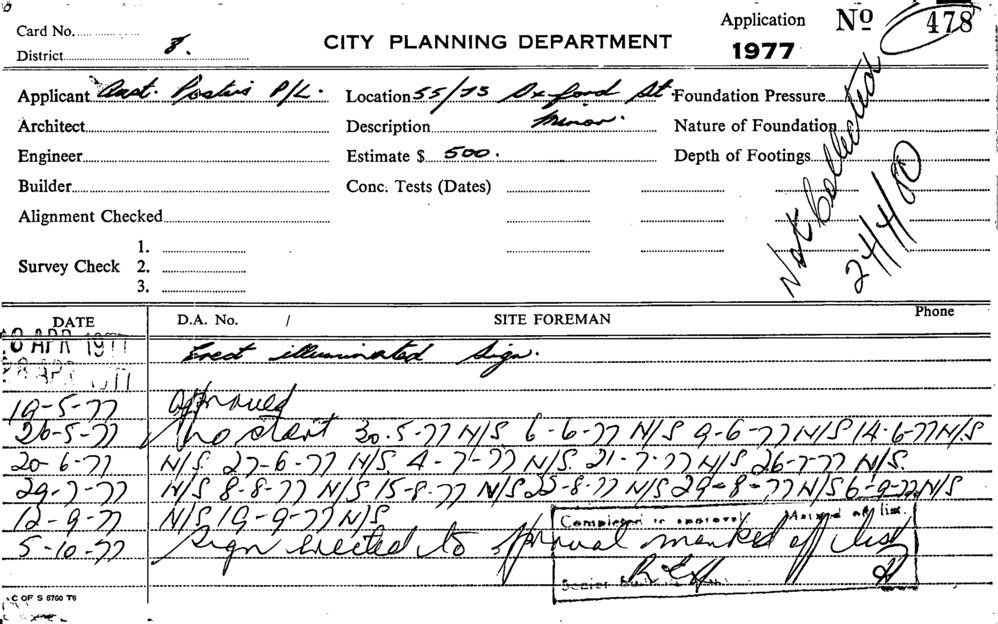 Card No.
Application No 478
District 8.
CITY PLANNING DEPARTMENT
1977
Applicant Aust. Posters P/L. Location 55/73 Oxford St. Foundation Pressure
Architect Description Minor. Nature of Foundation
Engineer Estimate $ 500. Depth of Footings
Builder Conc. Tests (Dates)
Not Collected
24/4/80
Alignment Checked
1.
Survey Check 2.
3.
DATE D.A. No. / SITE FOREMAN Phone
APR 1977 Erect illuminated sign.
APR
19-5-77 approved
26-5-77 No start 30.5-77 N/S 6-6-77 N/S 9-6-77 N/S 14-6-77 N/S
20-6-77 N/S. 27-6-77 N/S 4-7-77 N/S. 21-7-77 N/S 26-7-77 N/S.
29-7-77 N/S 8-8-77 N/S 15-8-77 N/S 22-8-77 N/S 29-8-77 N/S 6-9-77 N/S
12-9-77 N/S 19-9-77 N/S
Completed to approval Marked off list.
5-10-77 Sign erected to approval marked off list
Senior
C OF S 6760 T6